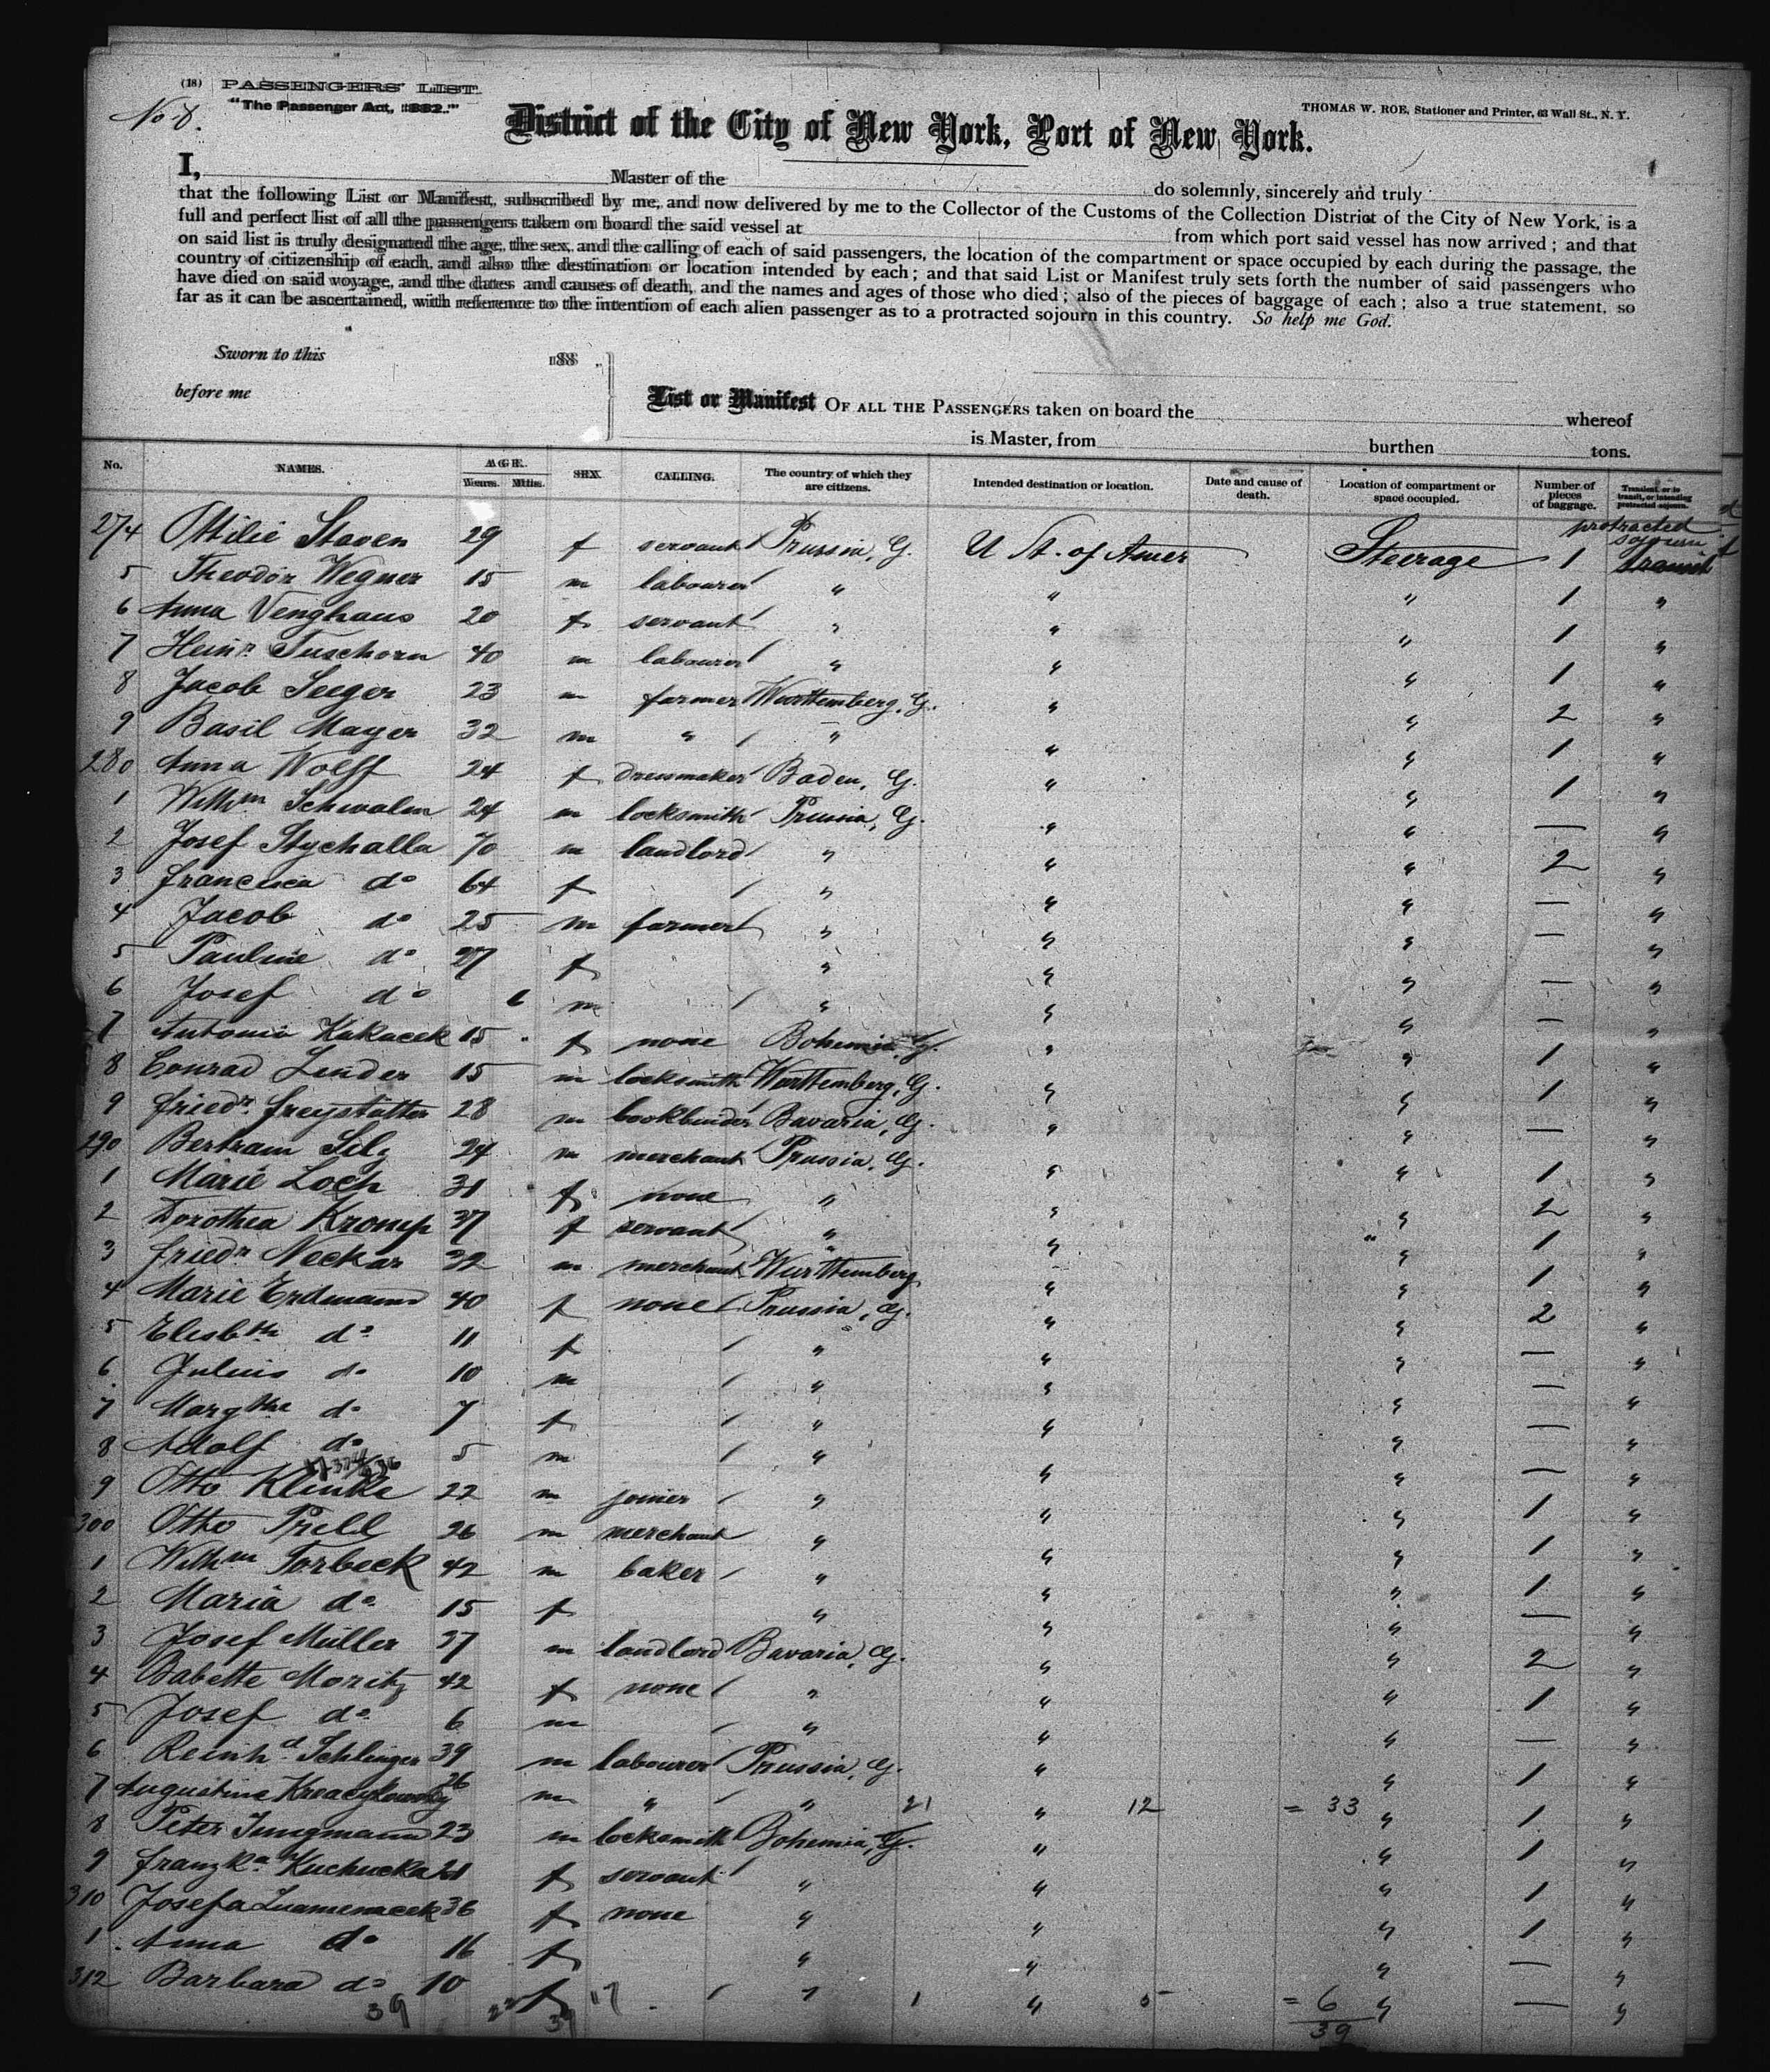 (18) PASSENGERS' LIST.
"The Passenger Act, 1882."
No 8.
THOMAS W. ROE, Stationer and Printer, 63 Wall St., N. Y.
District of the City of New York, Port of New York.
I, Master of the do solemnly, sincerely and truly
that the following List or Manifest, subscribed by me, and now delivered by me to the Collector of the Customs of the Collection District of the City of New York, is a
full and perfect list of all the passengers taken on board the said vessel at from which port said vessel has now arrived; and that
on said list is truly designated the age, the sex, and the calling of each of said passengers, the location of the compartment or space occupied by each during the passage, the
country of citizenship of each, and also the destination or location intended by each; and that said List or Manifest truly sets forth the number of said passengers who
have died on said voyage, and the dates and causes of death, and the names and ages of those who died; also of the pieces of baggage of each; also a true statement, so
far as it can be ascertained, with reference to the intention of each alien passenger as to a protracted sojourn in this country. So help me God.
Sworn to this 188
before me
List or Manifest OF ALL THE PASSENGERS taken on board the whereof
is Master, from burthen tons.
No. NAMES. AGE. Years. Mths. SEX. CALLING. The country of which they are citizens. Intended destination or location. Date and cause of death. Location of compartment or space occupied. Number of pieces of baggage. Transient, or in transit, or intending protracted sojourn.
274 Ottilie Staven 29 f servant Prussia, G. U St. of Amer Steerage 1 protracted sojourn
5 Theodor Wegner 15 m labourer " " " 1 "
6 Anna Venghaus 20 f servant " " " 1 "
7 Heinr. Tuschorn 40 m labourer " " " 1 "
8 Jacob Seeger 23 m farmer Württemberg, G. " " 2 "
9 Basil Mayer 32 m " " " " 1 "
280 Anna Wolff 24 f dressmaker Baden, G. " " 1 "
1 Wilhm Schwalm 24 m locksmith Prussia, G. " " — "
2 Josef Stychalla 70 m landlord " " " 2 "
3 Francisca do 64 f " " " — "
4 Jacob do 25 m farmer " " " — "
5 Pauline do 27 f " " " — "
6 Josef do 6 m " " " — "
7 Antonia Kukacek 15 f none Bohemia, G. " " 1 "
8 Conrad Zender 15 m locksmith Württemberg, G. " " 1 "
9 Friedr. Freystätter 28 m bookbinder Bavaria, G. " " — "
290 Bertram Selg 24 m merchant Prussia, G. " " 1 "
1 Marie Loch 31 f none " " " 2 "
2 Dorothea Kromp 37 f servant " " " 1 "
3 Friedr Neckar 32 m merchant Württemberg " " 1 "
4 Marie Erdmann 40 f none Prussia, G. " " 2 "
5 Elisbth do 11 f " " " — "
6 Julius do 10 m " " " — "
7 Margthe do 7 f " " " — "
8 Adolf do 5 m " " " — "
9 Otto Klinke 22 m joiner " " " 1 "
300 Otto Prell 26 m merchant " " " 1 "
1 Wilhm Torbeck 42 m baker " " " 1 "
2 Maria do 15 f " " " — "
3 Josef Müller 37 m landlord Bavaria, G. " " 2 "
4 Babette Moritz 42 f none " " " 1 "
5 Josef do 6 m " " " — "
6 Reinhd Schlinger 39 m labourer Prussia, G. " " 1 "
7 Augustine 26 m " " 21 " 12 = 33 " 1 "
8 Peter Jungmann 23 m locksmith Bohemia, G. " " 1 "
9 Franzka Kuchucka 21 f servant " " " 1 "
310 Josefa 36 f none " " " 1 "
1 Anna do 16 f " " " — "
312 Barbara do 10 f " 1 " 5 = 6 " — "
39 22 17 39 39